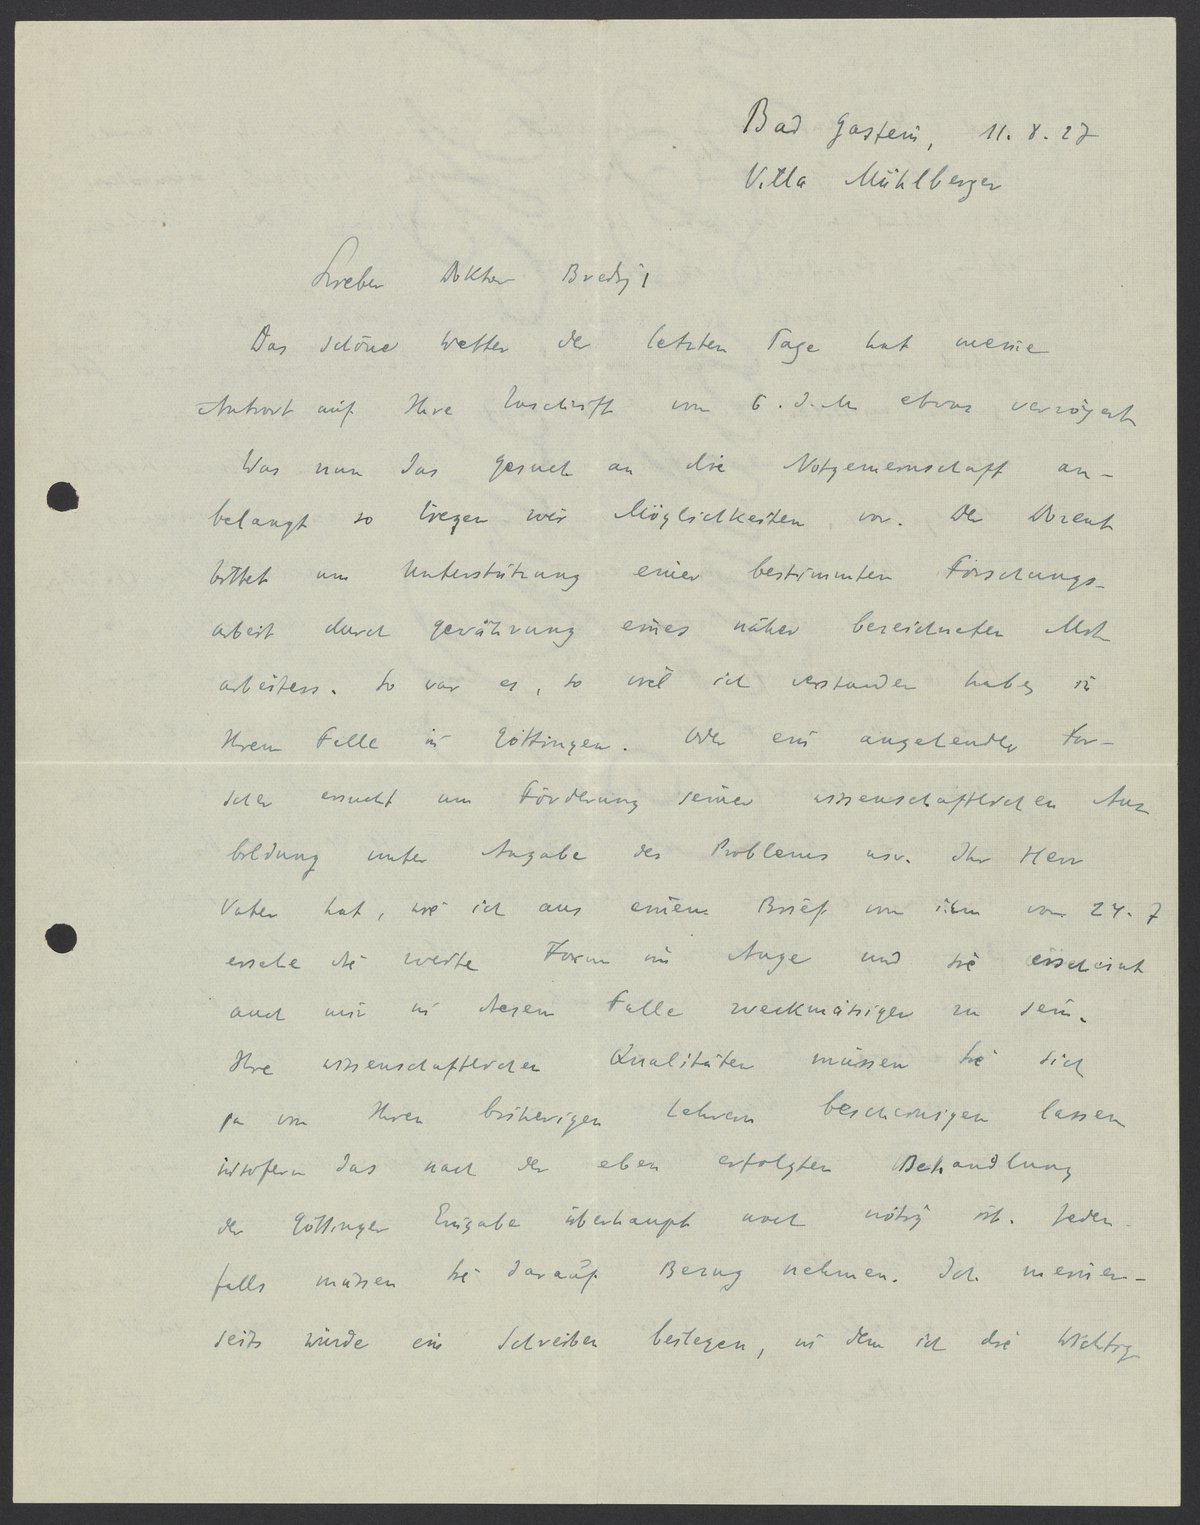 Bad Gastein, 11. 8. 27
Villa Mühlberger
Lieber Doktor Bredig!
Das schöne Wetter der letzten Tage hat meine
Antwort auf Ihre Zuschrift vom 6. d. M etwas verzögert
Was nun das Gesuch an die Notgemeinschaft an-
belangt so liegen zwei Möglichkeiten vor. Der Dozent
bittet um Unterstützung einer bestimmten Forschungs-
arbeit durch Gewährung eines näher bezeichneten Mit
arbeiters. So war es, so viel ich verstanden habe, in
Ihrem Falle in Göttingen. Oder ein angehender For-
scher ersucht um Förderung seiner wissenschaftlichen Aus
bildung unter Angabe des Problems usw. Ihr Herr
Vater hat, wie ich aus einem Brief von ihm vom 24. 7
ersehe die zweite Form im Auge und sie erscheint
auch mir in diesem Falle zweckmässiger zu sein.
Ihre wissenschaftlichen Qualitäten müssen Sie sich
ja von Ihren bisherigen Lehrern bescheinigen lassen
insofern das nach der eben erfolgten Behandlung
der Göttinger Eingabe überhaupt noch nötig ist. Jeden-
falls müssen Sie darauf Bezug nehmen. Ich meiner-
seits würde ein Schreiben beilegen, in dem ich die Wichtig